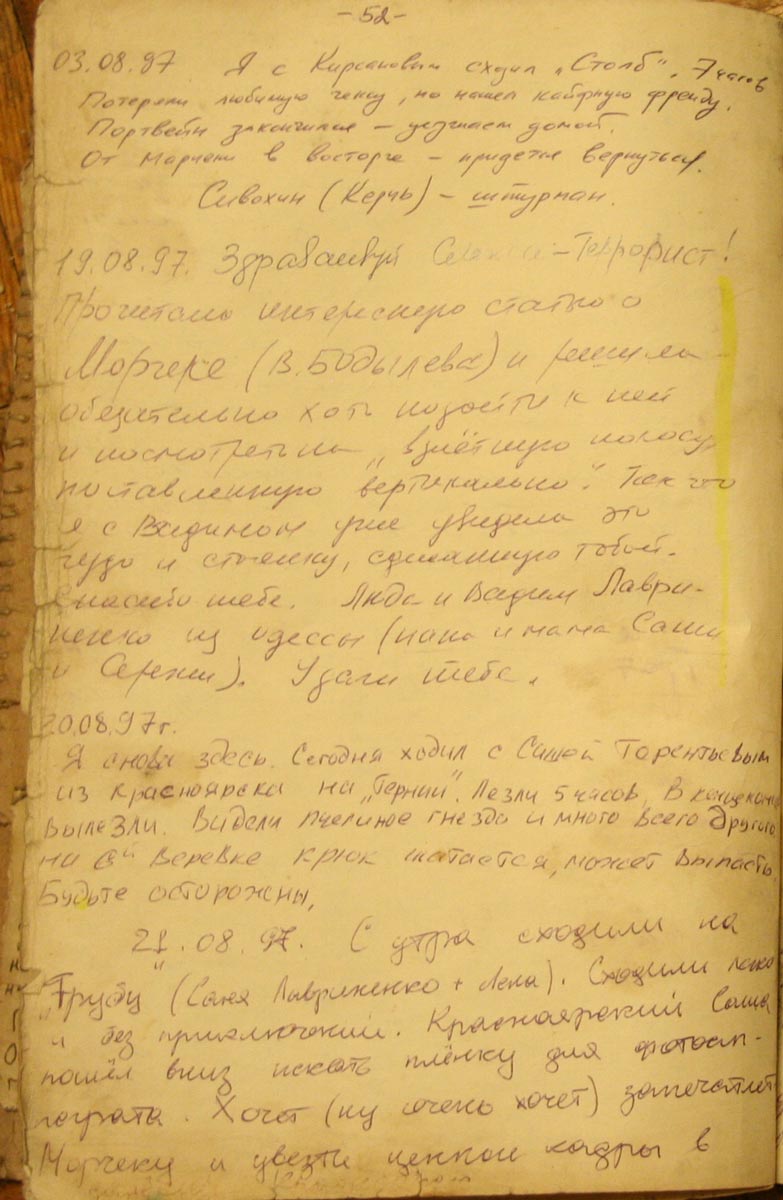 - 52 -
03.08.97 Я с Кирсановым сходил „Столб". 7 часов
Потеряли любимую чеку, но нашел кайфную френду.
Портвейн закончился – уезжаем домой.
От Марчеки в восторге – придется вернуться.
Сивохин (Керчь) – штурман.
19.08.97. Здравствуй -Террорист!
Прочитала интересную статью о
Морчеке (В. Бодылева) и решила
обязательно хоть подойти к ней
и посмотреть на „взлётную полосу,
поставленную вертикально". Так что
я с Вадимом уже увидела это
чудо и стоянку, сделанную тобой.
Спасибо тебе. Люда и Вадим Лаври-
ненко из Одессы (папа и мама Саши
и Сережи). Удачи тебе.
20.08.97г.
Я снова здесь. Сегодня ходил с Сашей Торентьевым
из Красноярска на „Терний". Лезли 5 часов, В конце концов
вылезли. Видели пчелиное гнездо и много всего другого
на 6й веревке крюк шатается, может выпасть
Будьте осторожны,
21.08.97. С утра сходили на
„Трубу" (Саня Лавриненко + Лена). Сходили
и без приключений. Красноярский Саша
пошёл вниз искать плёнку для фотоап-
парата. Хочет (ну очень хочет) запечатлеть
Морчеку и увезти ценные кадры в